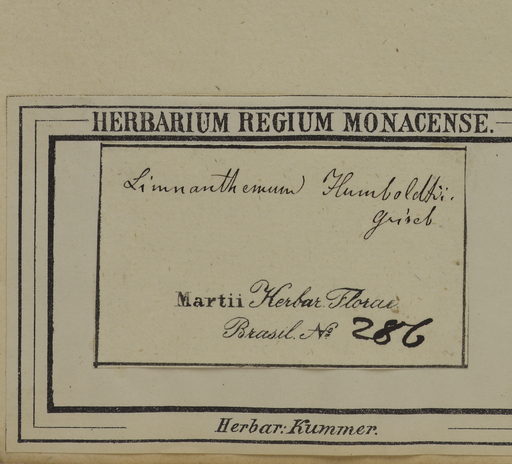 HERBARIUM REGIUM MONACENSE.
Limnanthemum Humboldtii.
Griseb
Martii Herbar. Florae
Brasil. No 286
Herbar: Kummer.